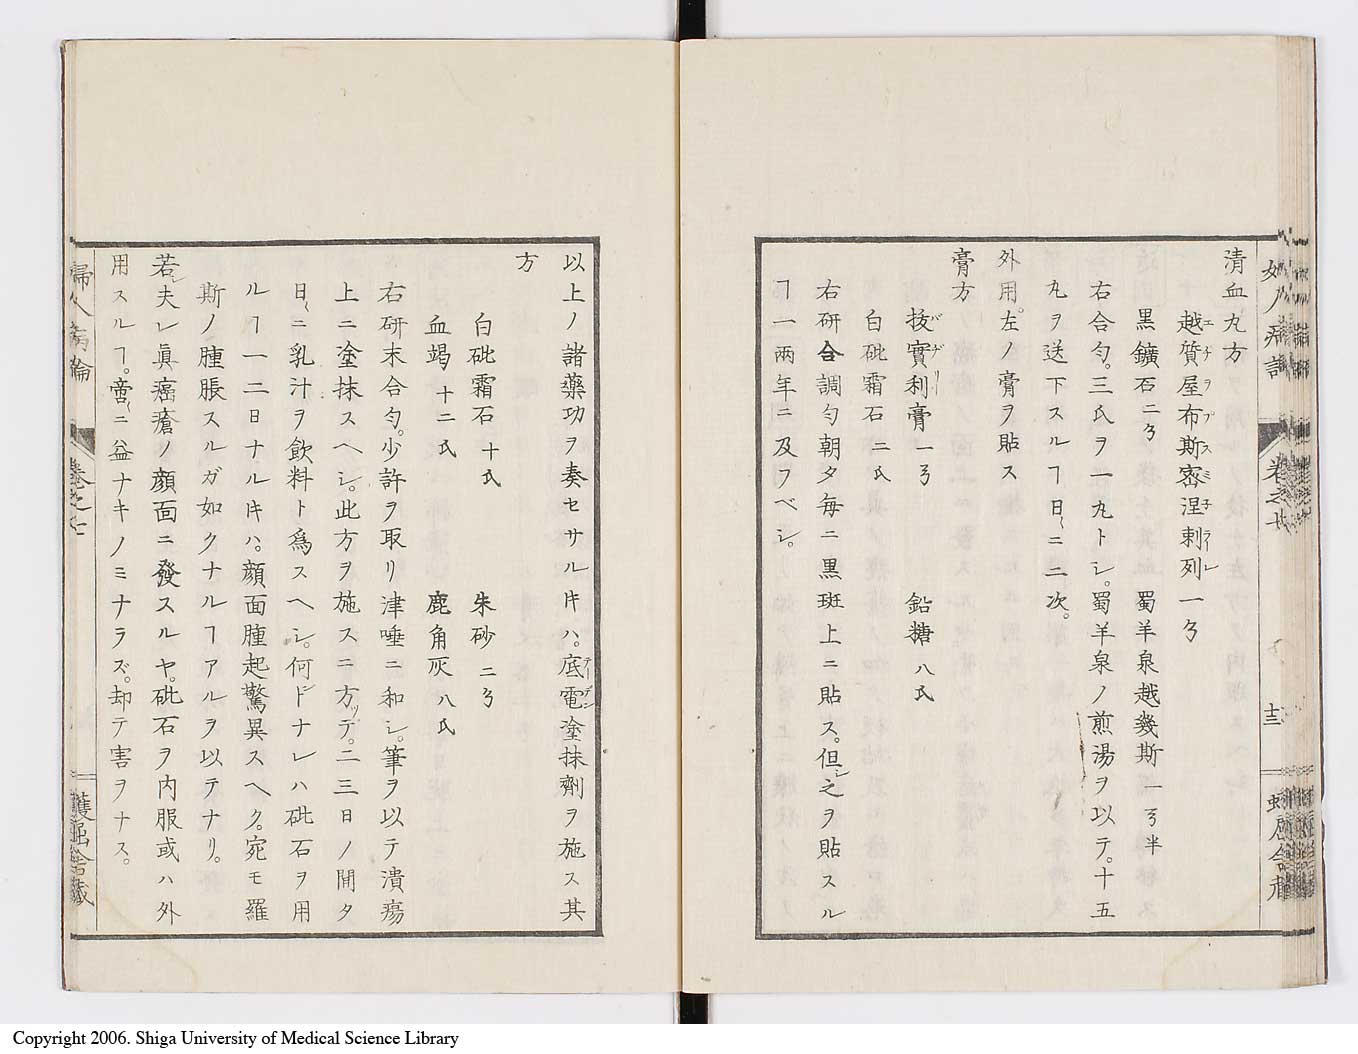 清血丸方
越質屋布斯密涅剌列一ヲ
エチヲプスミネラーレ
黒鑛石二ヲ　蜀羊泉越幾斯一ヲ半
右合匀。三氏ヲ一丸トシ。蜀羊泉ノ煎湯ヲ以テ。十五
丸ヲ送下スルヿ日ニ二次。
外用。左ノ膏ヲ貼ス
膏方
抜實利膏一ヲ　鉛糖八氏
バジリー
白砒霜石二氏
右研合調匀朝夕毎ニ黒斑上ニ貼ス。但シ之ヲ貼スル
ヿ一兩年ニ及フベシ。
以上ノ諸藥功ヲ奏セサル片ハ。底電塗抹劑ヲ施ス其
方
白砒霜石十氏　朱砂二ヲ
血竭十二氏　鹿角灰八氏
右研末合匀。少許ヲ取リ津唾ニ和シ。筆ヲ以テ潰瘍
上ニ塗抹スヘシ。此方ヲ施スニ方ッテ。二三日ノ間タ
日ニ乳汁ヲ飲料ト爲スヘシ。何ドナレハ砒石ヲ用
ルヿ一二日ナル片ハ。顔面腫起驚異スヘク。宛モ羅
斯ノ腫脹スルガ如クナルヿアルヲ以テナリ。
若シ夫レ眞癌瘡ノ顔面ニ發スルヤ。砒石ヲ内服或ハ外
用スルヿ。啻ニ益ナキノミナラズ。却テ害ヲナス。
婦人病論
卷之七